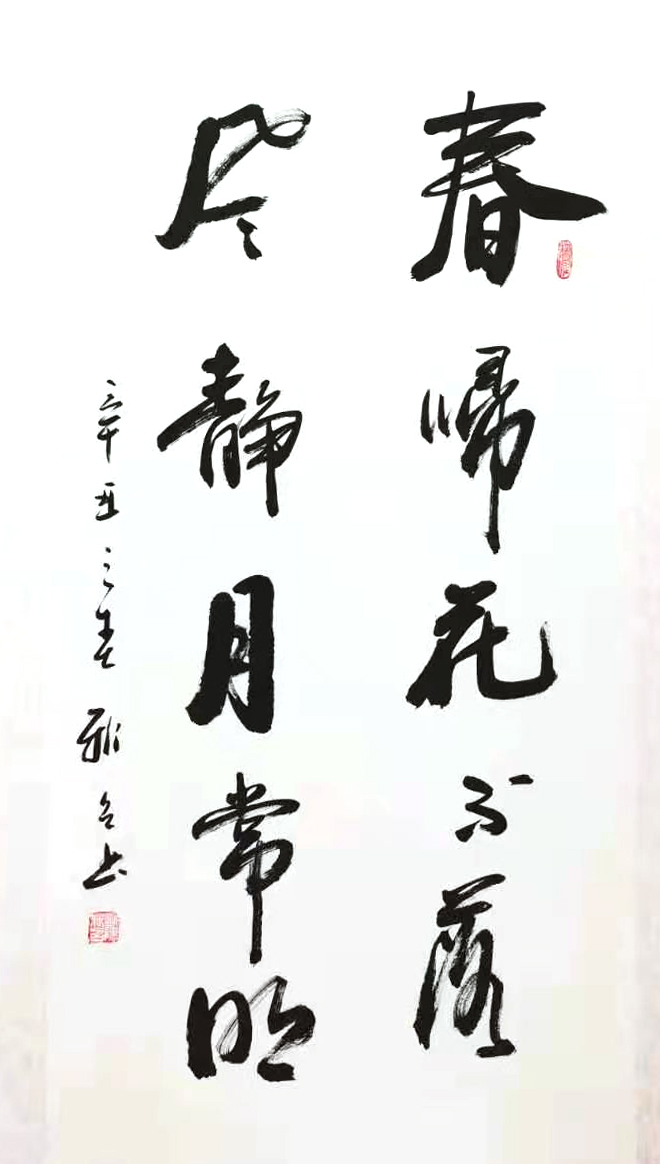 春歸花不落
風静月常明
辛丑之春雅